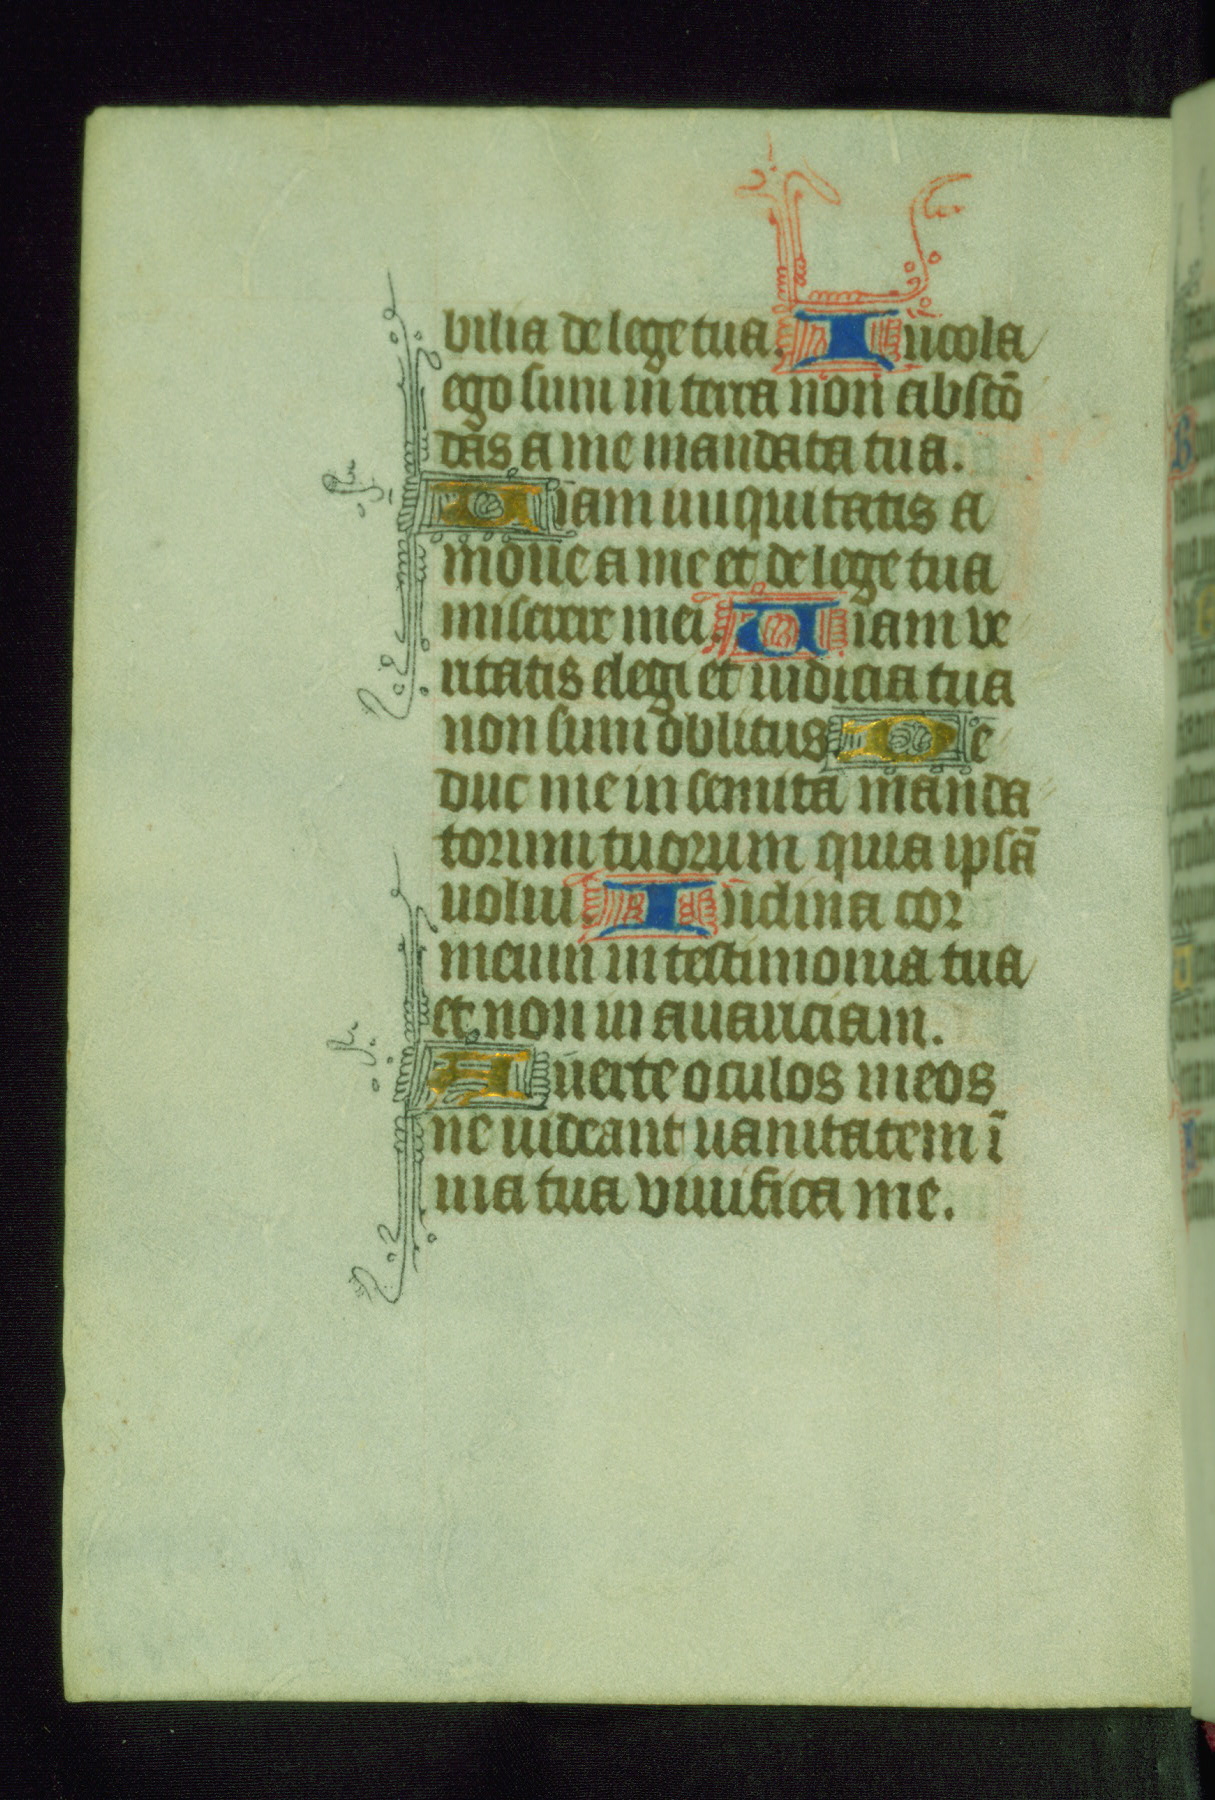 bilia de lege tua. Incola
ego sum in terra non abscō
das a me mandata tua.
Viam iniquitatis a
moue a me et de lege tua
miserere mei. Viam ve
ritatis elegi et iudicia tua
non sum oblitus De
duc me in semita manda
torum tuorum quia ipsā
uolui. Inclina cor
meum in testimonia tua
et non in auariciam.
Auerte oculos meos
ne uideant uanitatem ī
uia tua viuifica me.